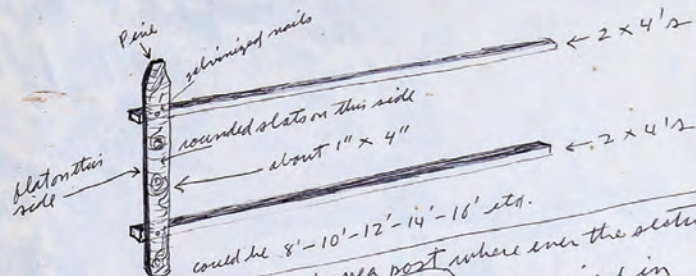 Pine
galvanized nails
← 2 x 4's
rounded slats on this side
about 1" x 4"
flat on this
side
← 2 x 4's
could be 8'-10'-12'-14'-16' etc.
post where ever the slats
in